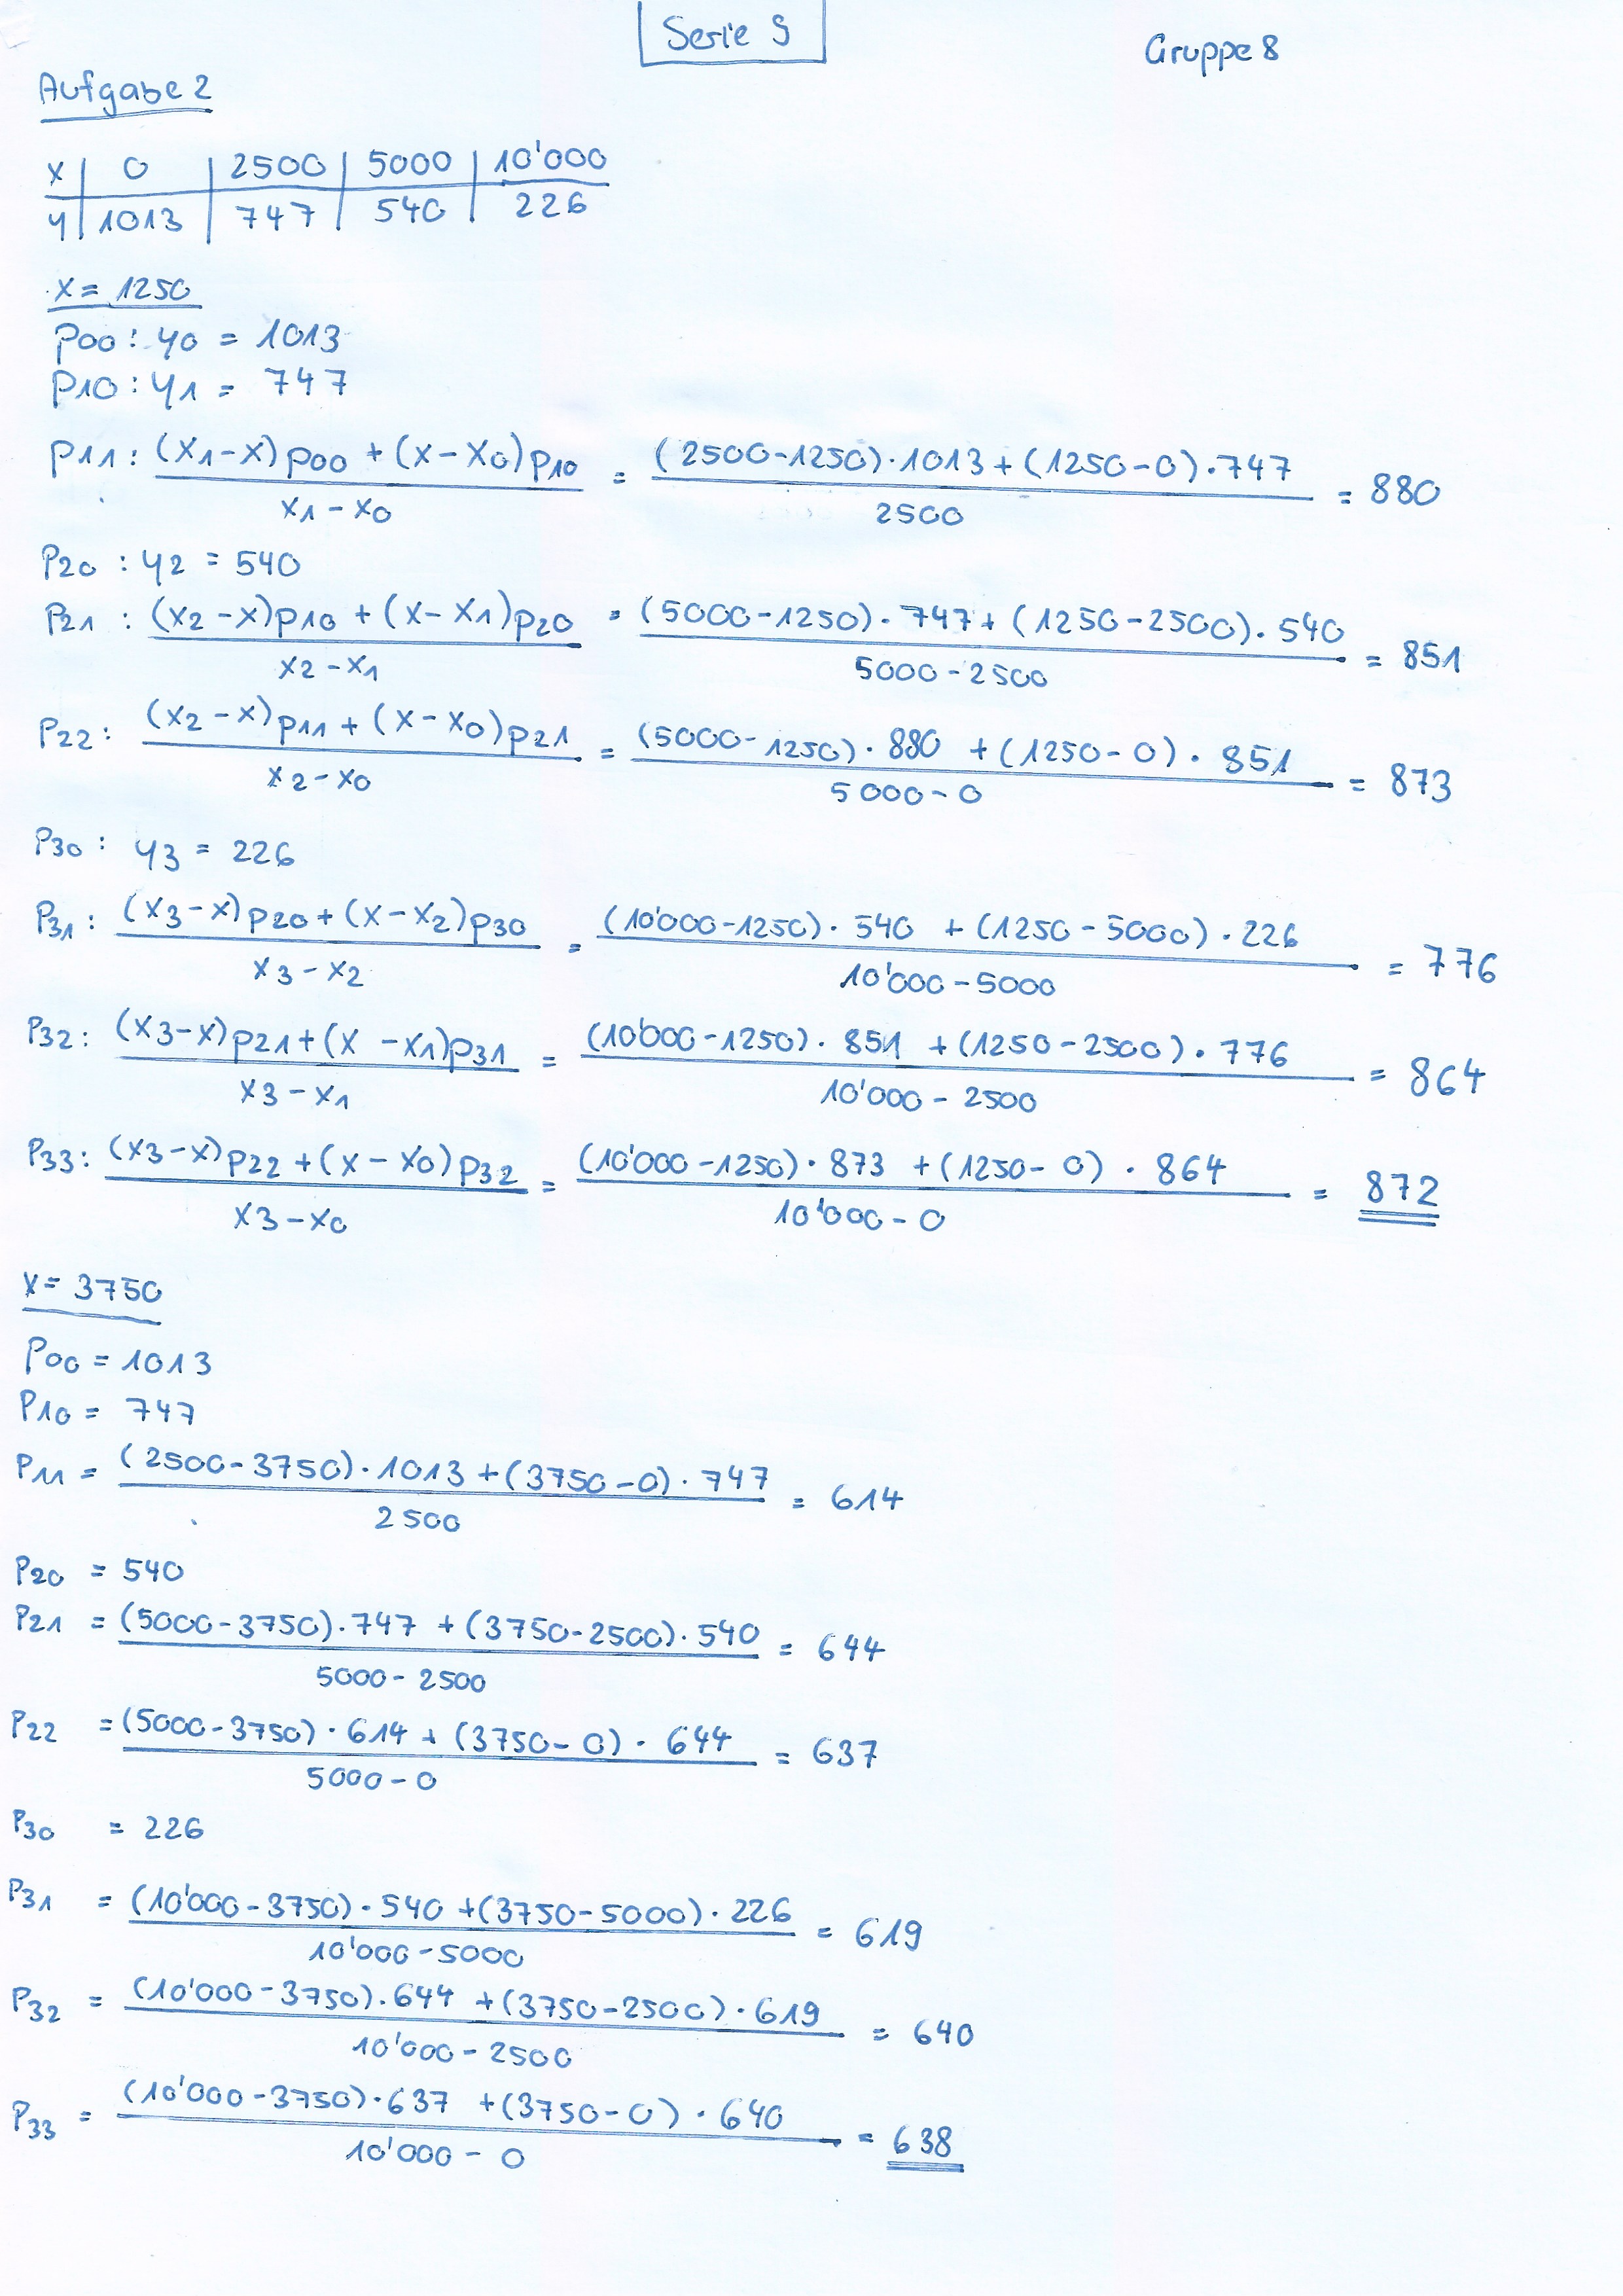 Serie 9
Gruppe 8
Aufgabe 2
x | 0 | 2500 | 5000 | 10'000
y | 1013 | 747 | 540 | 226
x = 1250
p00 : y0 = 1013
p10 : y1 = 747
p11 : (x1-x)p00 + (x-x0)p10 / x1-x0 = (2500-1250)·1013+(1250-0)·747 / 2500 = 880
p20 : y2 = 540
p21 : (x2-x)p10 + (x-x1)p20 / x2-x1 = (5000-1250)·747+(1250-2500)·540 / 5000-2500 = 851
p22 : (x2-x)p11 + (x-x0)p21 / x2-x0 = (5000-1250)·880 +(1250-0)·851 / 5000-0 = 873
p30 : y3 = 226
p31 : (x3-x)p20+(x-x2)p30 / x3-x2 = (10'000-1250)·540 +(1250-5000)·226 / 10'000-5000 = 776
p32 : (x3-x)p21+(x-x1)p31 / x3-x1 = (10'000-1250)·851 +(1250-2500)·776 / 10'000-2500 = 864
p33 : (x3-x)p22+(x-x0)p32 / x3-x0 = (10'000-1250)·873 +(1250-0)·864 / 10'000-0 = 872
x = 3750
p00 = 1013
p10 = 747
p11 = (2500-3750)·1013+(3750-0)·747 / 2500 = 614
p20 = 540
p21 = (5000-3750)·747 +(3750-2500)·540 / 5000-2500 = 644
p22 = (5000-3750)·614 + (3750-0)·644 / 5000-0 = 637
p30 = 226
p31 = (10'000-3750)·540 +(3750-5000)·226 / 10'000-5000 = 619
p32 = (10'000-3750)·644 +(3750-2500)·619 / 10'000-2500 = 640
p33 = (10'000-3750)·637 +(3750-0)·640 / 10'000-0 = 638